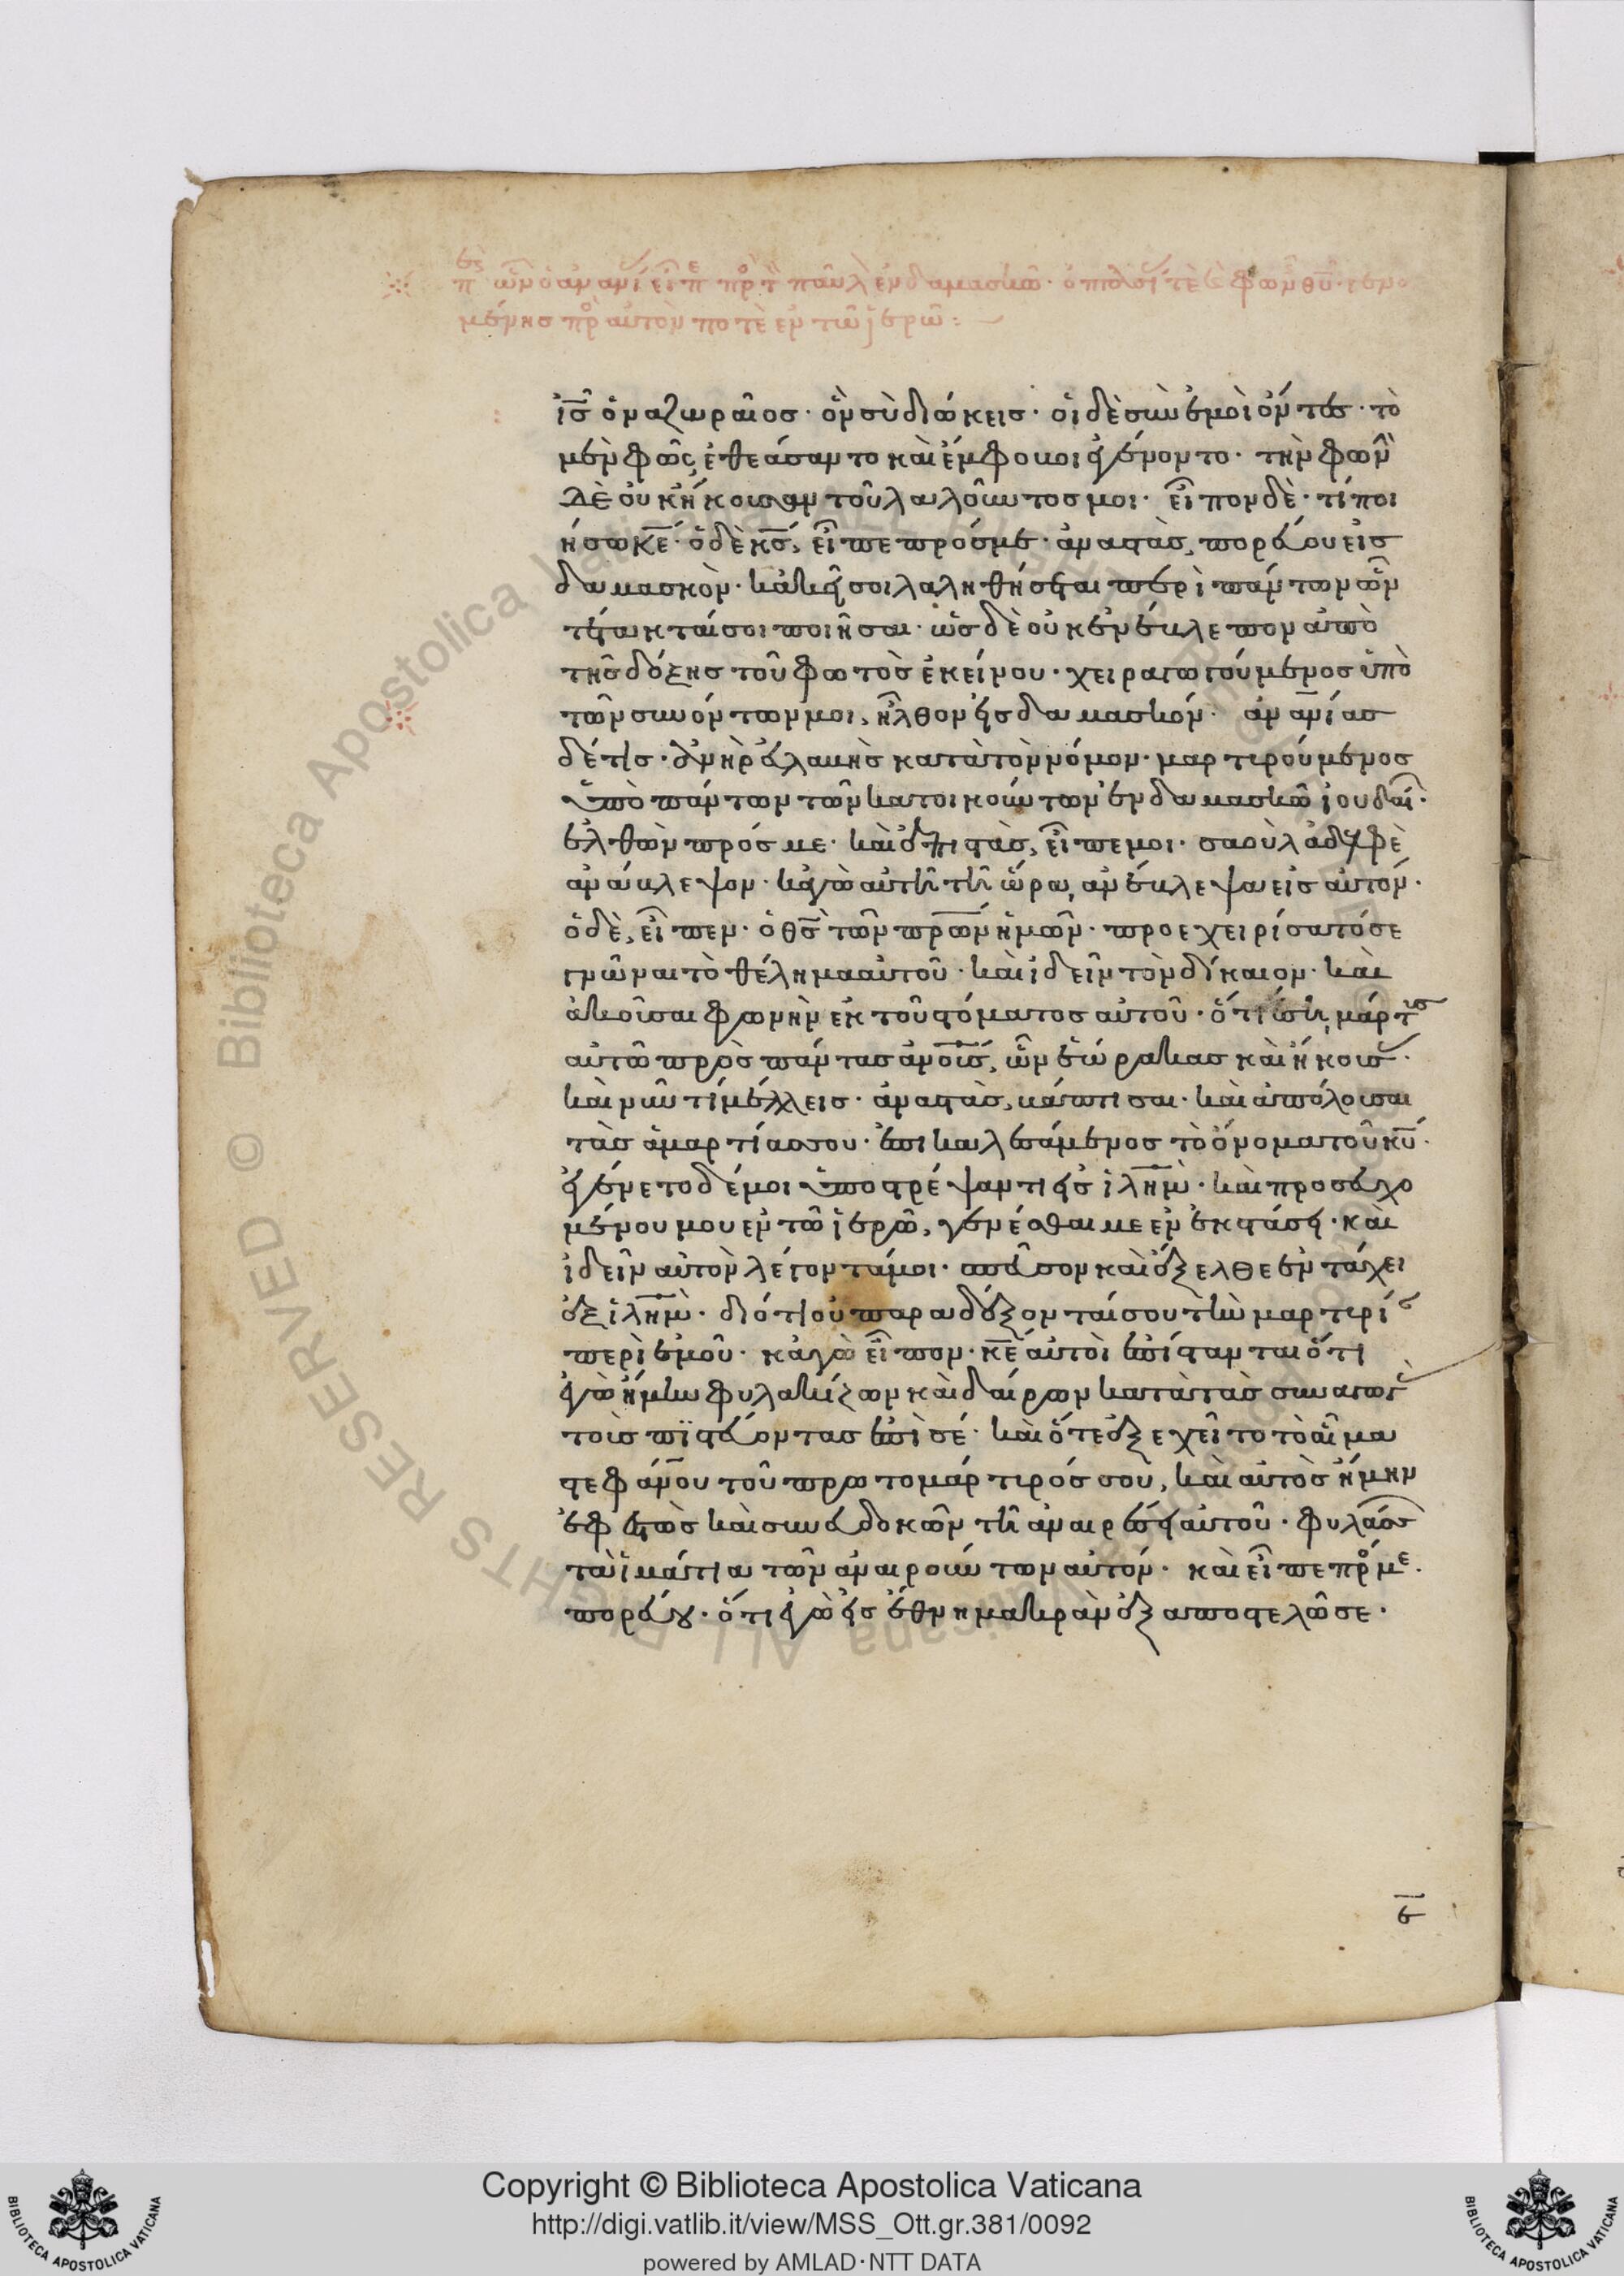 ἰς̅ ὁ ναζωραῖος· ὃν σὺ διώκεις· οἱ δὲ σὺν ἐμοὶ ὄντες· τὸ
μὲν φῶς, ἐθεάσαντο καὶ ἔμφοβοι ἐγένοντο· τὴν φων
δὲ οὐκ ἤκουσαν τοῦ λαλοῦντός μοι· εἶπον δὲ· τί ποι
ήσω κε̅· ὁ δὲ κς̅, εἶπε πρός με· ἀναστὰς, πορεύου εἰς
δαμασκὸν· κἀκεῖ σοι λαληθήσεται περὶ πάντων ὧν
τέτακταί σοι ποιῆσαι· ὡς δὲ οὐκ ἐνέβλεπον ἀπὸ
τῆς δόξης τοῦ φωτὸς ἐκείνου· χειραγωγούμενος ὑπὸ
τῶν συνόντων μοι, ἦλθον εἰς δαμασκόν· ἀνανίας
δέ τις· ἀνὴρ εὐλαβὴς κατὰ τὸν νόμον· μαρτυρούμενος
ὑπὸ πάντων τῶν κατοικούντων ἐν δαμασκῶ ἰουδαί·
ἐλθὼν πρός με· καὶ ἐπιστὰς, εἶπέ μοι· σαοὺλ ἀδελφὲ
ἀνάβλεψον· κἀγὼ αὐτῆ τῆ ὥρα, ἀνέβλεψα εἰς αὐτόν·
ὁ δὲ, εἶπεν· ὁ θς̅ τῶν πρων ἡμῶν· προεχειρίσατό σε
γνῶναι τὸ θέλημα αὐτοῦ· καὶ ἰδεῖν τὸν δίκαιον· καὶ
ἀκοῦσαι φωνὴν ἐκ τοῦ στόματος αὐτοῦ· ὅτι ἔση, μάρτυς
αὐτῶ πρὸς πάντας ἀνους, ὧν ἑώρακας καὶ ἤκους·
καὶ νῦν τί μέλλεις· ἀναστὰς, βάπτισαι· καὶ ἀπόλουσαι
τὰς ἁμαρτίας σου· ἐπικαλεσάμενος τὸ ὄνομα τοῦ κυ̅·
ἐγένετο δέ μοι ὑποστρέψαντι εἰς ἱλημ· καὶ προσευχο
μένου μου ἐν τῶ ἱερῶ, γενέσθαι με ἐν ἐκστάσει· καὶ
ἰδεῖν αὐτὸν λέγοντά μοι· σπεῦσον καὶ ἔξελθε ἐν τάχει
ἐξ ἱλημ· διότι οὐ παραδέξονταί σου τὴν μαρτυρί
περὶ ἐμοῦ· κἀγὼ εἶπον· κε̅ αὐτοὶ ἐπίστανται ὅτι
ἐγὼ ἤμην φυλακίζων καὶ δαίρων κατὰ τὰς συναγωγ
τοὺς πιστεύοντας ἐπὶ σέ· καὶ ὅτε ἐξεχεῖτο τὸ αἷμα
στεφάνου τοῦ πρωτομάρτυρός σου, καὶ αὐτὸς ἤμην
ἐφεστὼς καὶ συνευδοκῶν τῆ ἀναιρέσει αὐτοῦ· φυλάσς
τὰ ἱμάτια τῶν ἀναιρούντων αὐτόν· καὶ εἶπε πρ με·
πορεύου· ὅτι ἐγὼ εἰς ἔθνη μακρὰν ἐξαποστελῶ σε·
Copyright © Biblioteca Apostolica Vaticana
http://digi.vatlib.it/view/MSS_Ott.gr.381/0092
powered by AMLAD·NTT DATA
BIBLIOTECA APOSTOLICA VATICANA
BIBLIOTECA APOSTOLICA VATICANA
Biblioteca Apostolica Vaticana ALL RIGHTS RESERVED ©